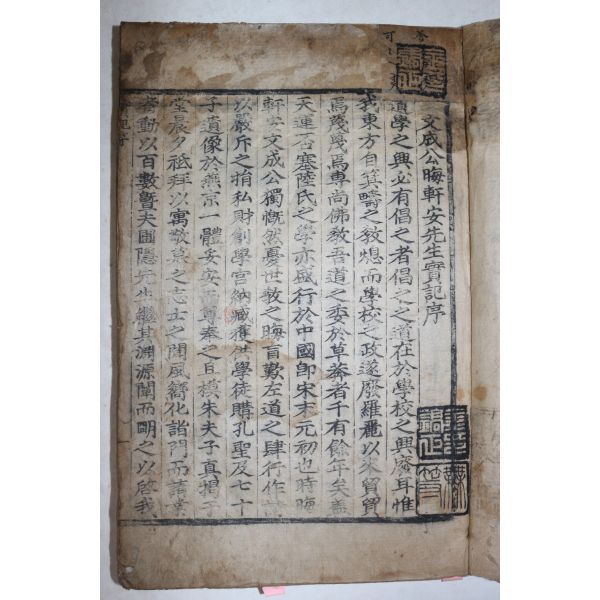 文成公晦軒安先生實記序
道學之興必有倡之者倡之之道在於學校之興廢耳惟
我東方自箕疇之敎熄而學校之政遂廢羅麗以來貿貿
焉蔑蔑焉專尚佛敎吾道之委於草莽者千有餘年矣盖
天運否塞陸氏之學亦盛行於中國卽宋末元初也時晦
軒安文成公獨慨然憂世敎之晦盲歎左道之肆行作詩
以嚴斥之捐私財創學宮納臧獲供學徒購孔聖及七十
子遺像於燕京一體妥安尊奉之且模朱夫子眞揭于
堂晨夕祗拜以寓敬慕之志士之聞風嚮化詣門而請業
者動以百數曁夫圃隱先生繼其淵源闡而明之以啓我